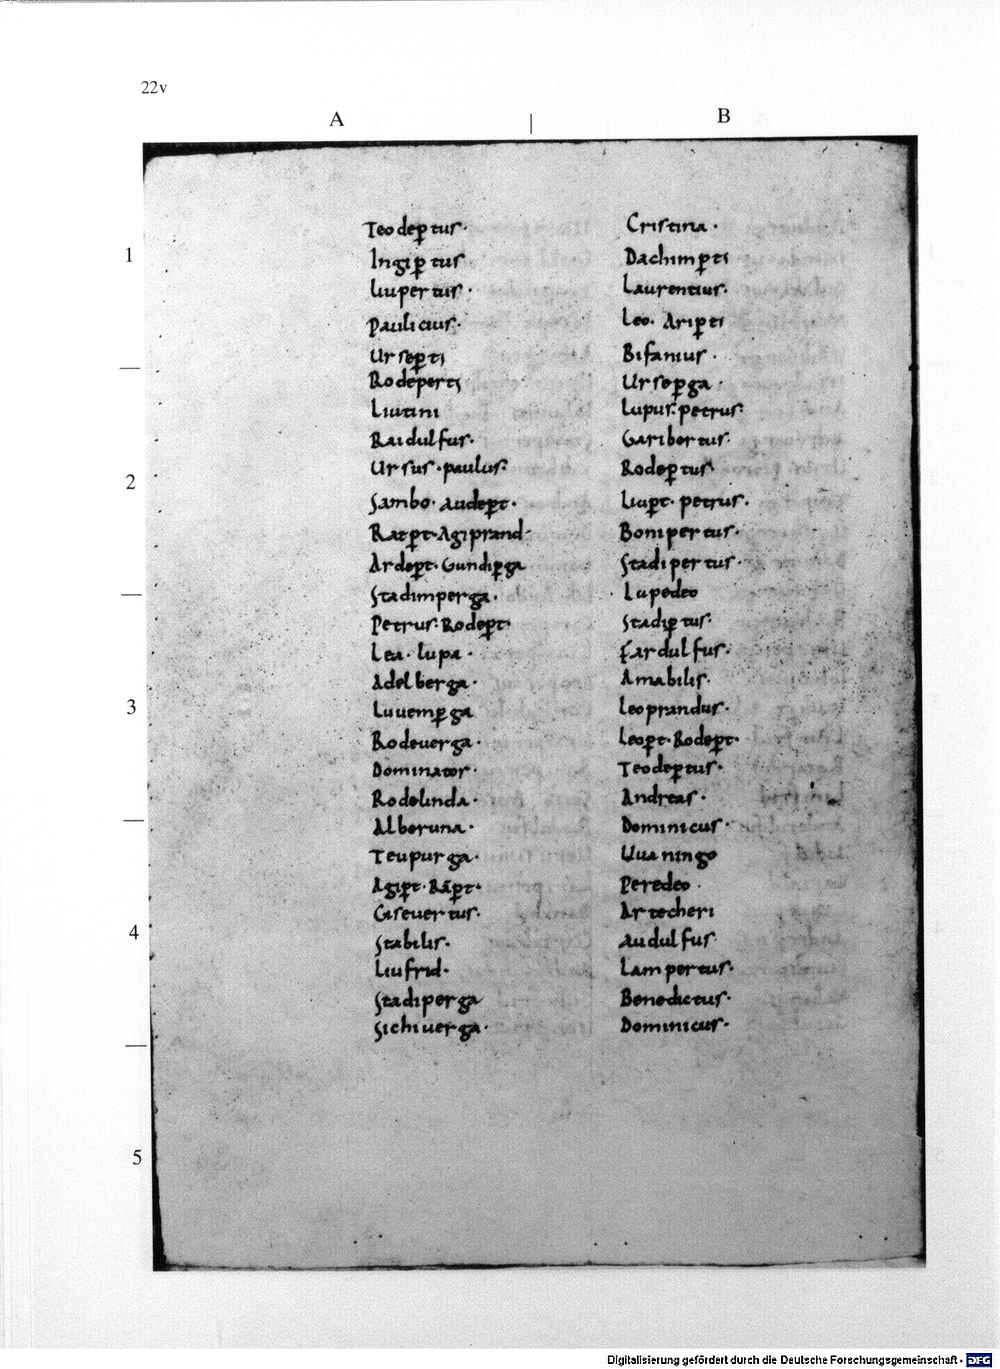 22v
A | B
1
2
3
4
5
Teodeꝑtus·
Ingiꝑtus
liupertus·
Paulicius·
Urseꝑti
Rodeperti
Liutini
Raidulfus·
Ursus·paulus·
Sambo·audeꝑt·
Ratꝑt·Agiprand·
Ardeꝑt·Gundiꝑga
Stadimperga·
Petrus·Rodeꝑt·
Lea·lupa·
Adelberga·
Luuemꝑga
Rodeuerga·
Dominator·
Rodelinda·
Alberuna·
Teupurga·
Agiꝑt·Rāꝑt·
Giseuertus·
Stabilis·
Liufrid·
Stadiperga
Sichiuerga·
Cristina·
Dachimꝑti
Laurentius·
Leo·Ariꝑti
Bifanius·
Urseꝑga·
Lupus·petrus·
Garibertus·
Rodeꝑtus·
Liuꝑt·petrus·
Bonipertus·
Stadipertus·
Lupedeo
Stadiꝑtus·
Fardulfus·
Amabilis·
leoprandus·
leoꝑt·Rodeꝑt·
Teodeꝑtus·
Andreas·
Dominicus·
Uuaningo
Peredeo·
Artecheri
Audulfus·
Lampertus·
Benedictus·
Dominicus·
Digitalisierung gefördert durch die Deutsche Forschungsgemeinschaft - DFG